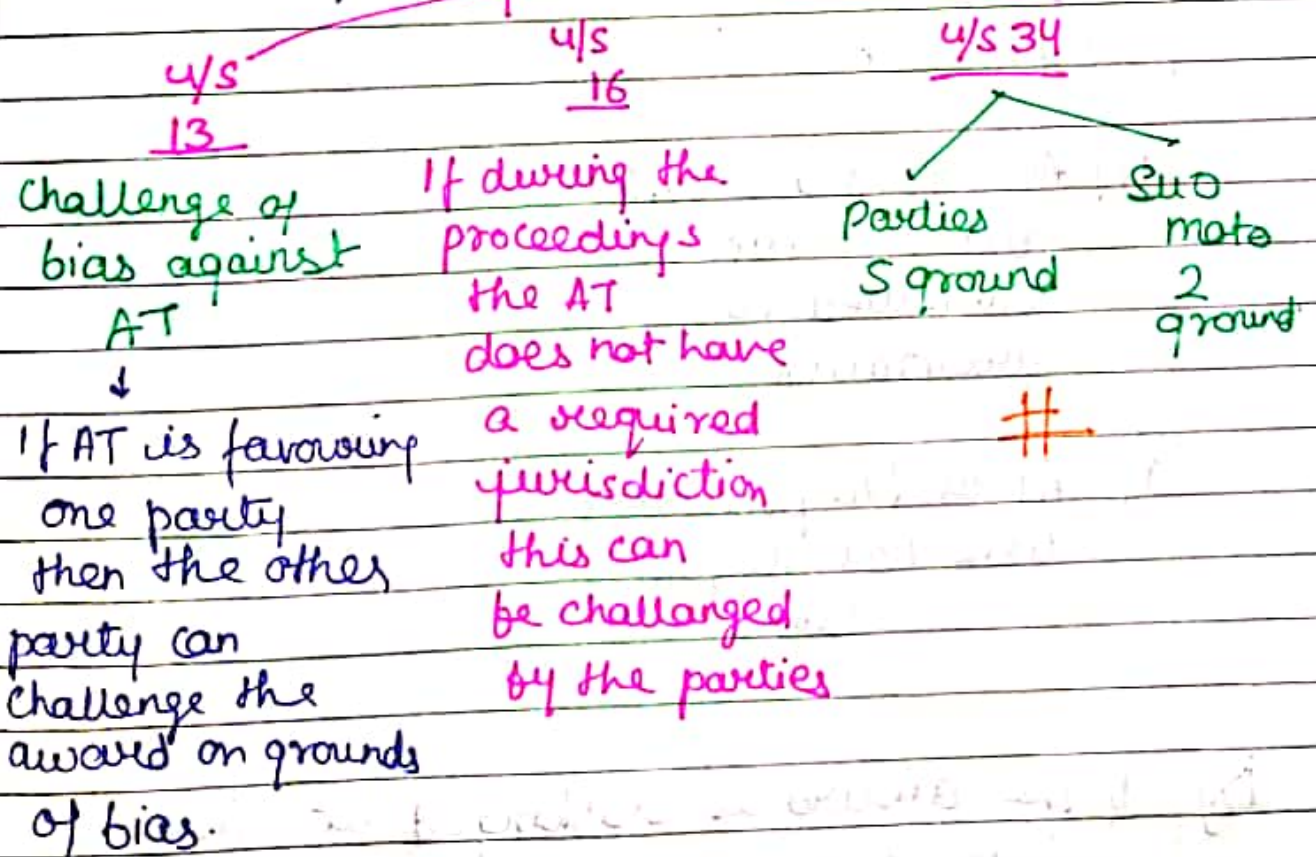 u/s
13
Challenge of
bias against
AT
↓
If AT is favouring
one party
then the other
party can
Challenge the
award on grounds
of bias.
u/s
16
If during the
proceedings
the AT
does not have
a required
jurisdiction
this can
be challanged
by the parties
u/s 34
Parties
5 ground
Suo
moto
2
ground
#